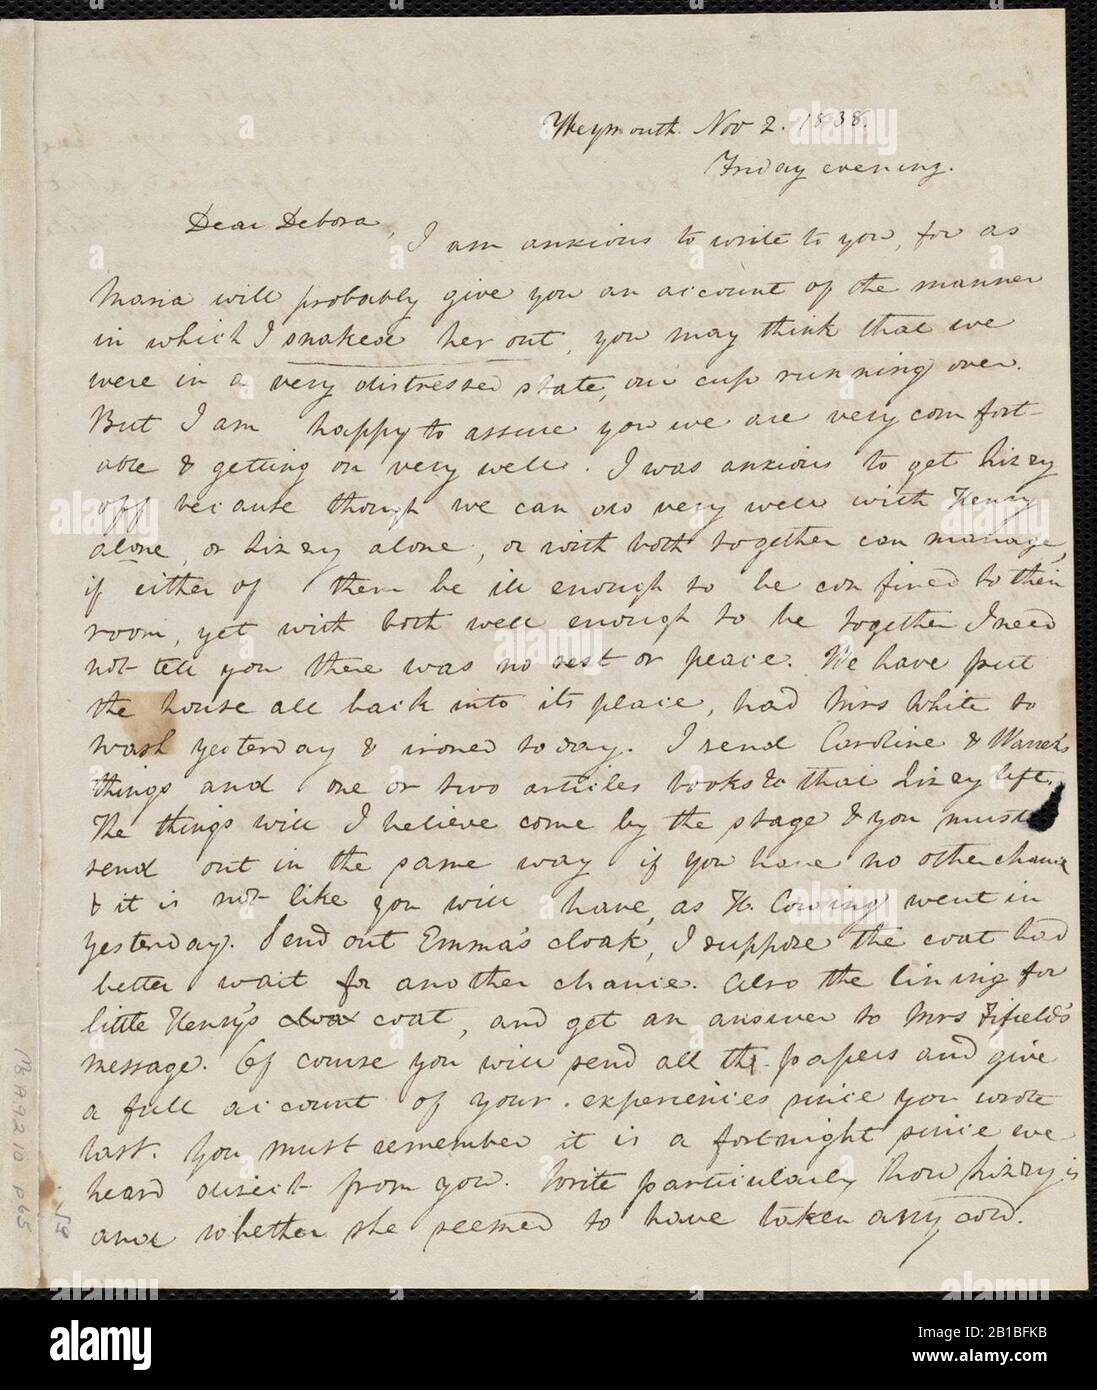 Weymouth. Nov 2. 1838.
Friday evening.
Dear Debora,
I am anxious to write to you, for as
Maria will probably give you an account of the manner
in which I snaked her out, you may think that we
were in a very distressed state, our cup running over.
But I am happy to assure you we are very comfort-
able & getting on very well. I was anxious to get Lizzy
off because though we can do very well with Henry
alone, or Lizzy alone, or with both together can manage,
if either of them be ill enough to be confined to their
room, yet with both well enough to be together I need
not tell you there was no rest or peace. We have put
the house all back into its place, had Mrs White to
wash yesterday & ironed today. I send Caroline & Warren's
things and one or two articles books &c that Lizzy left.
The things will I believe come by the stage & you must
send out in the same way if you have no other chance
& it is not like you will have, as H. Cowing went in
yesterday. Send out Emma's cloak, I suppose the coat had
better wait for another chance. Also the lining for
little Henry's cloa coat, and get an answer to Mrs Fifield's
message. Of course you will send all the papers and give
a full account of your experiences since you wrote
last. You must remember it is a fortnight since we
heard direct from you. Write particularly how Lizzy is
and whether she seemed to have taken any cold.
Ms A.9.2.10 p 65
alamy
Image ID: 2B1BFKB
www.alamy.com